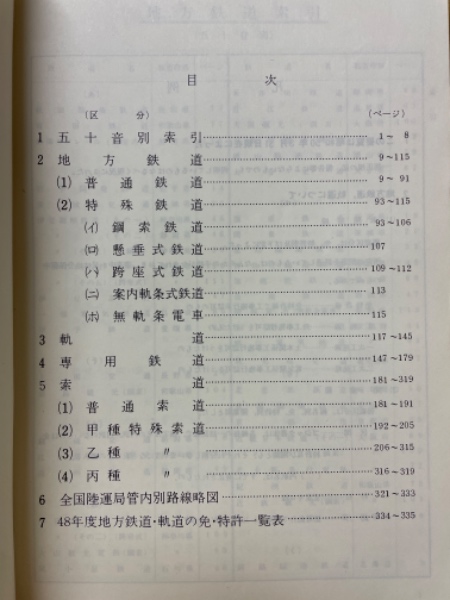 目 次
(区 分) (ページ)
1 五十音別索引 1～ 8
2 地方鉄道 9～115
(1) 普通鉄道 9～ 91
(2) 特殊鉄道 93～115
(イ) 鋼索鉄道 93～106
(ロ) 懸垂式鉄道 107
(ハ) 跨座式鉄道 109～112
(ニ) 案内軌条式鉄道 113
(ホ) 無軌条電車 115
3 軌道 117～145
4 専用鉄道 147～179
5 索道 181～319
(1) 普通索道 181～191
(2) 甲種特殊索道 192～205
(3) 乙種 〃 206～315
(4) 丙種 〃 316～319
6 全国陸運局管内別路線略図 321～333
7 48年度地方鉄道・軌道の免・特許一覧表 334～335